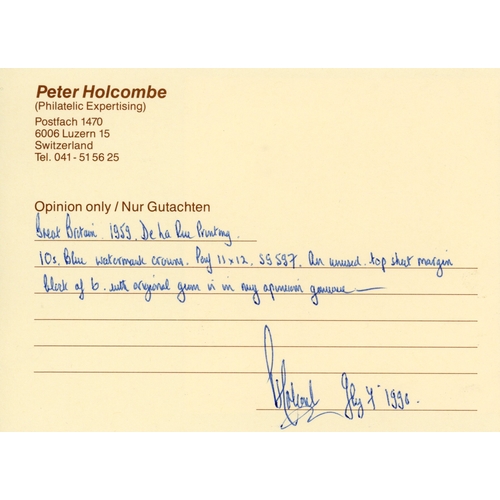 Peter Holcombe
(Philatelic Expertising)
Postfach 1470
6006 Luzern 15
Switzerland
Tel. 041-51 56 25
Opinion only / Nur Gutachten
Great Britain. 1959. De La Rue Printing.
10s. Blue watermark crowns. Perf 11x12. SG 597. An unused top sheet margin
block of 6 with original gum is in my opinion genuine
July 1990.